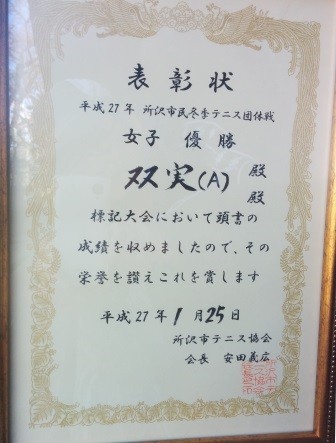 表彰状
平成27年 所沢市民冬季テニス団体戦
女子 優勝
双実(A) 殿
殿
標記大会において頭書の
成績を収めましたので、その
栄誉を讃えこれを賞します
平成27年1月25日
所沢市テニス協会
会長 安田義広